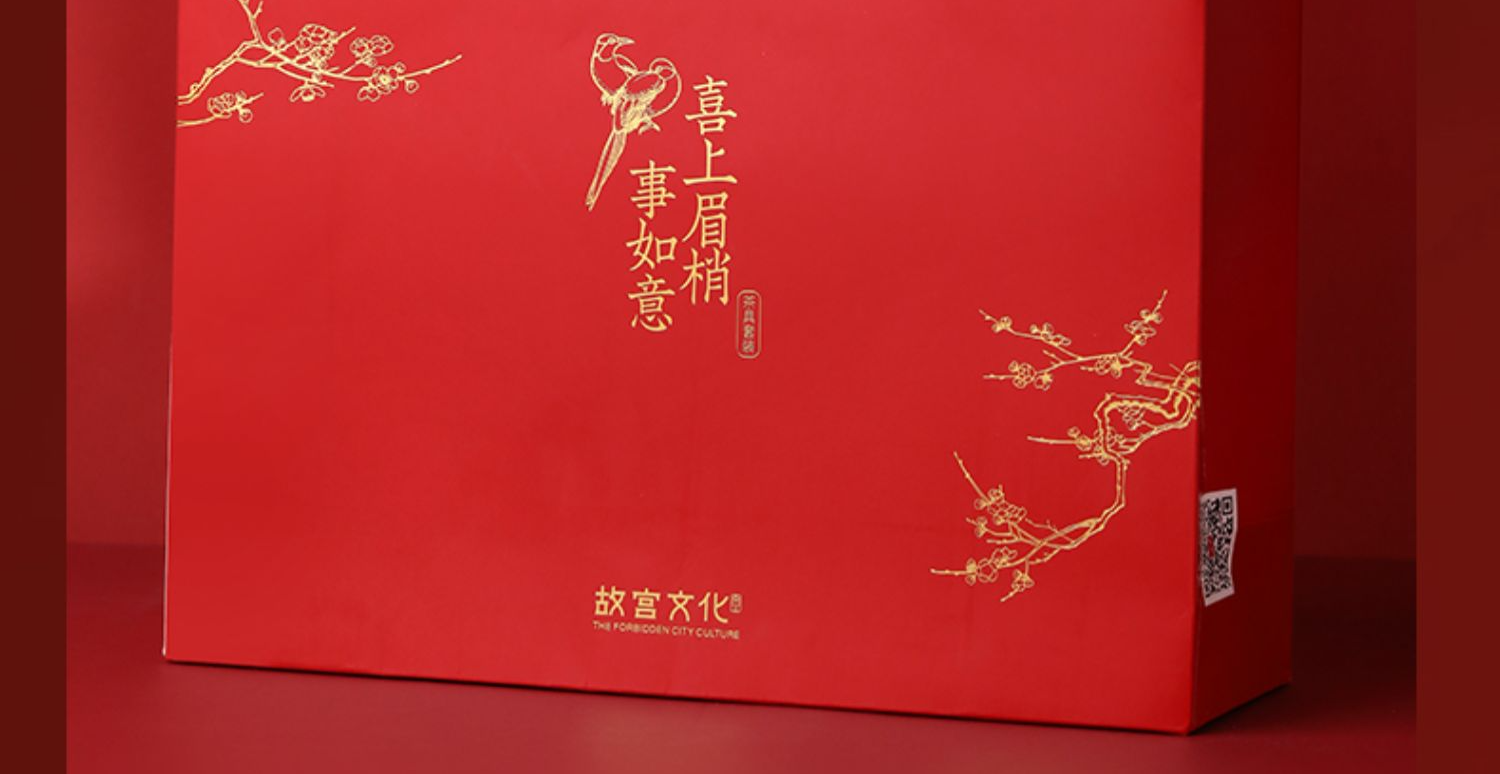 喜上眉梢
事如意
茶具套装
故宫文化
THE FORBIDDEN CITY CULTURE